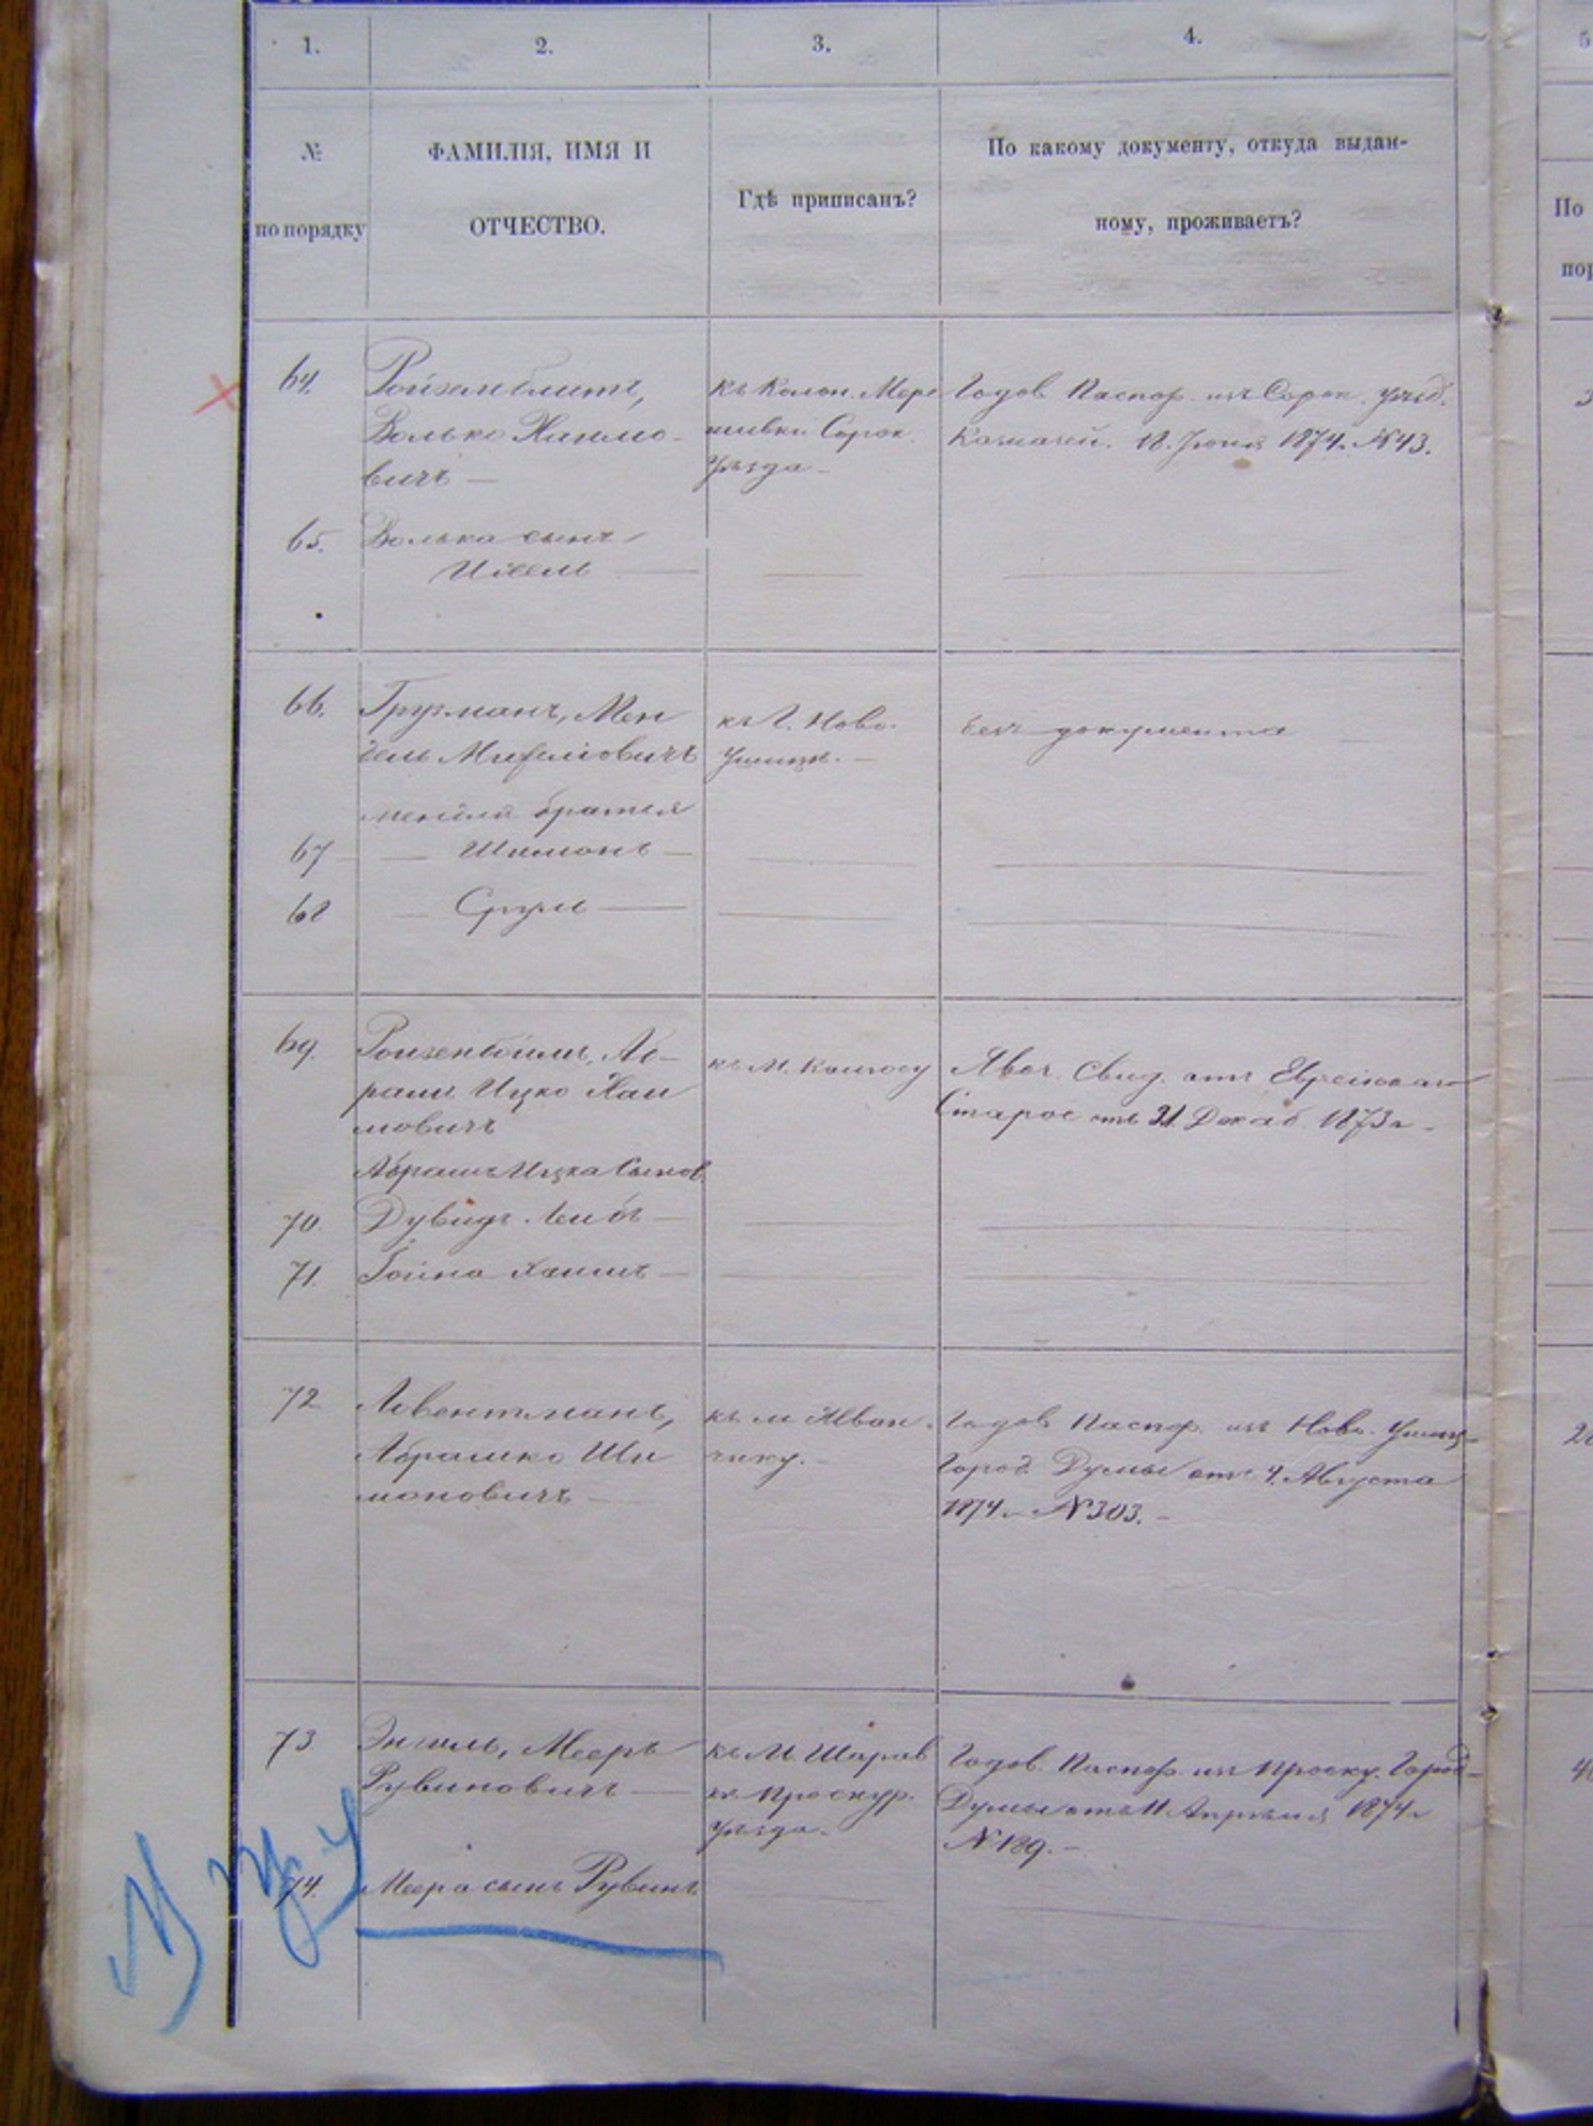 1. 2. 3. 4.
№
по порядку
ФАМИЛІЯ, ИМЯ И
ОТЧЕСТВО.
Гдѣ приписанъ?
По какому документу, откуда выдан-
ному, проживаетъ?
По
64.
Волько Хаимо-
вичъ —
къ Колон. Мере
шивки Сорок.
Уѣзда —
Годов Паспор. изъ Сорок. Уѣзд.
Казначей. 18. Іюня 1874 г. № 43.
65. Волька сынъ
66. Грузманъ, Мен
къ Г. Ново-
Ушицѣ. —
безъ документа
братья
67 — Шимонъ —
68 — Срул —
69. Ройзенбоймъ, Аб-
рамъ Ицко Хаи
мовичъ
къ М. Калюсу
Явоч. Свид. отъ Еврейскаго
Старос отъ 31. Декаб. 1873 г. -
Абрамъ Ицка Сынов.
70. Дувидъ Лейбъ —
71. Хаимъ —
72 Левентманъ,
Абрашко Ши
моновичъ —
къ м Жван
чику. —
Годов Паспор. изъ Ново. Ушиц-
Город. Думы отъ 4. Августа
1874 г. № 303. -
73 Энгель, Мееръ
Рувиновичъ —
къ М. Шарав
кѣ Проскур.
Уѣзда. -
Годов. Паспор. изъ Проску. Город-
Думы отъ 11 Апрѣля 1874 г
№ 189. -
74. Меера сынъ Рувинъ